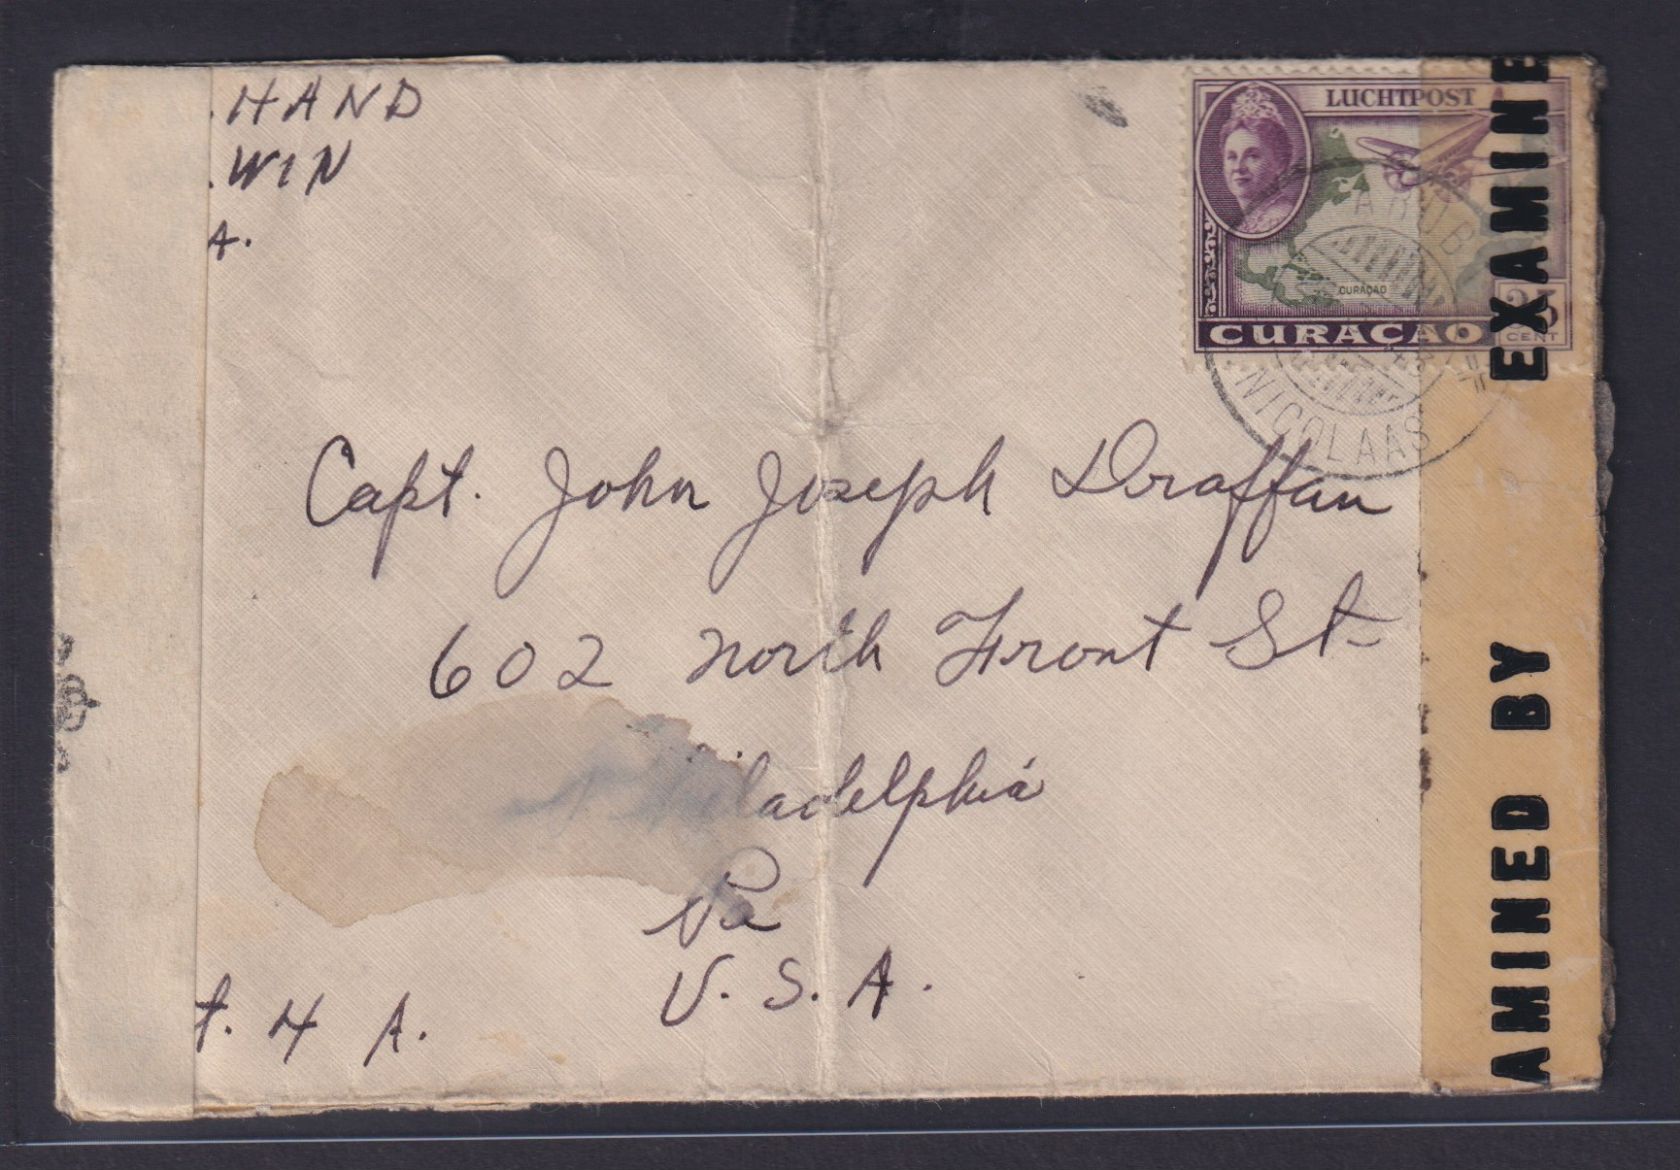 HAND
WIN
A.
LUCHTPOST
CURAÇAO
CURAÇAO
CENT
NICOLAAS
EXAMINE
AMINED BY
Capt. John Joseph Draffan
602 North Front St-
Philadelphia
Pa
U. S. A.
H A.